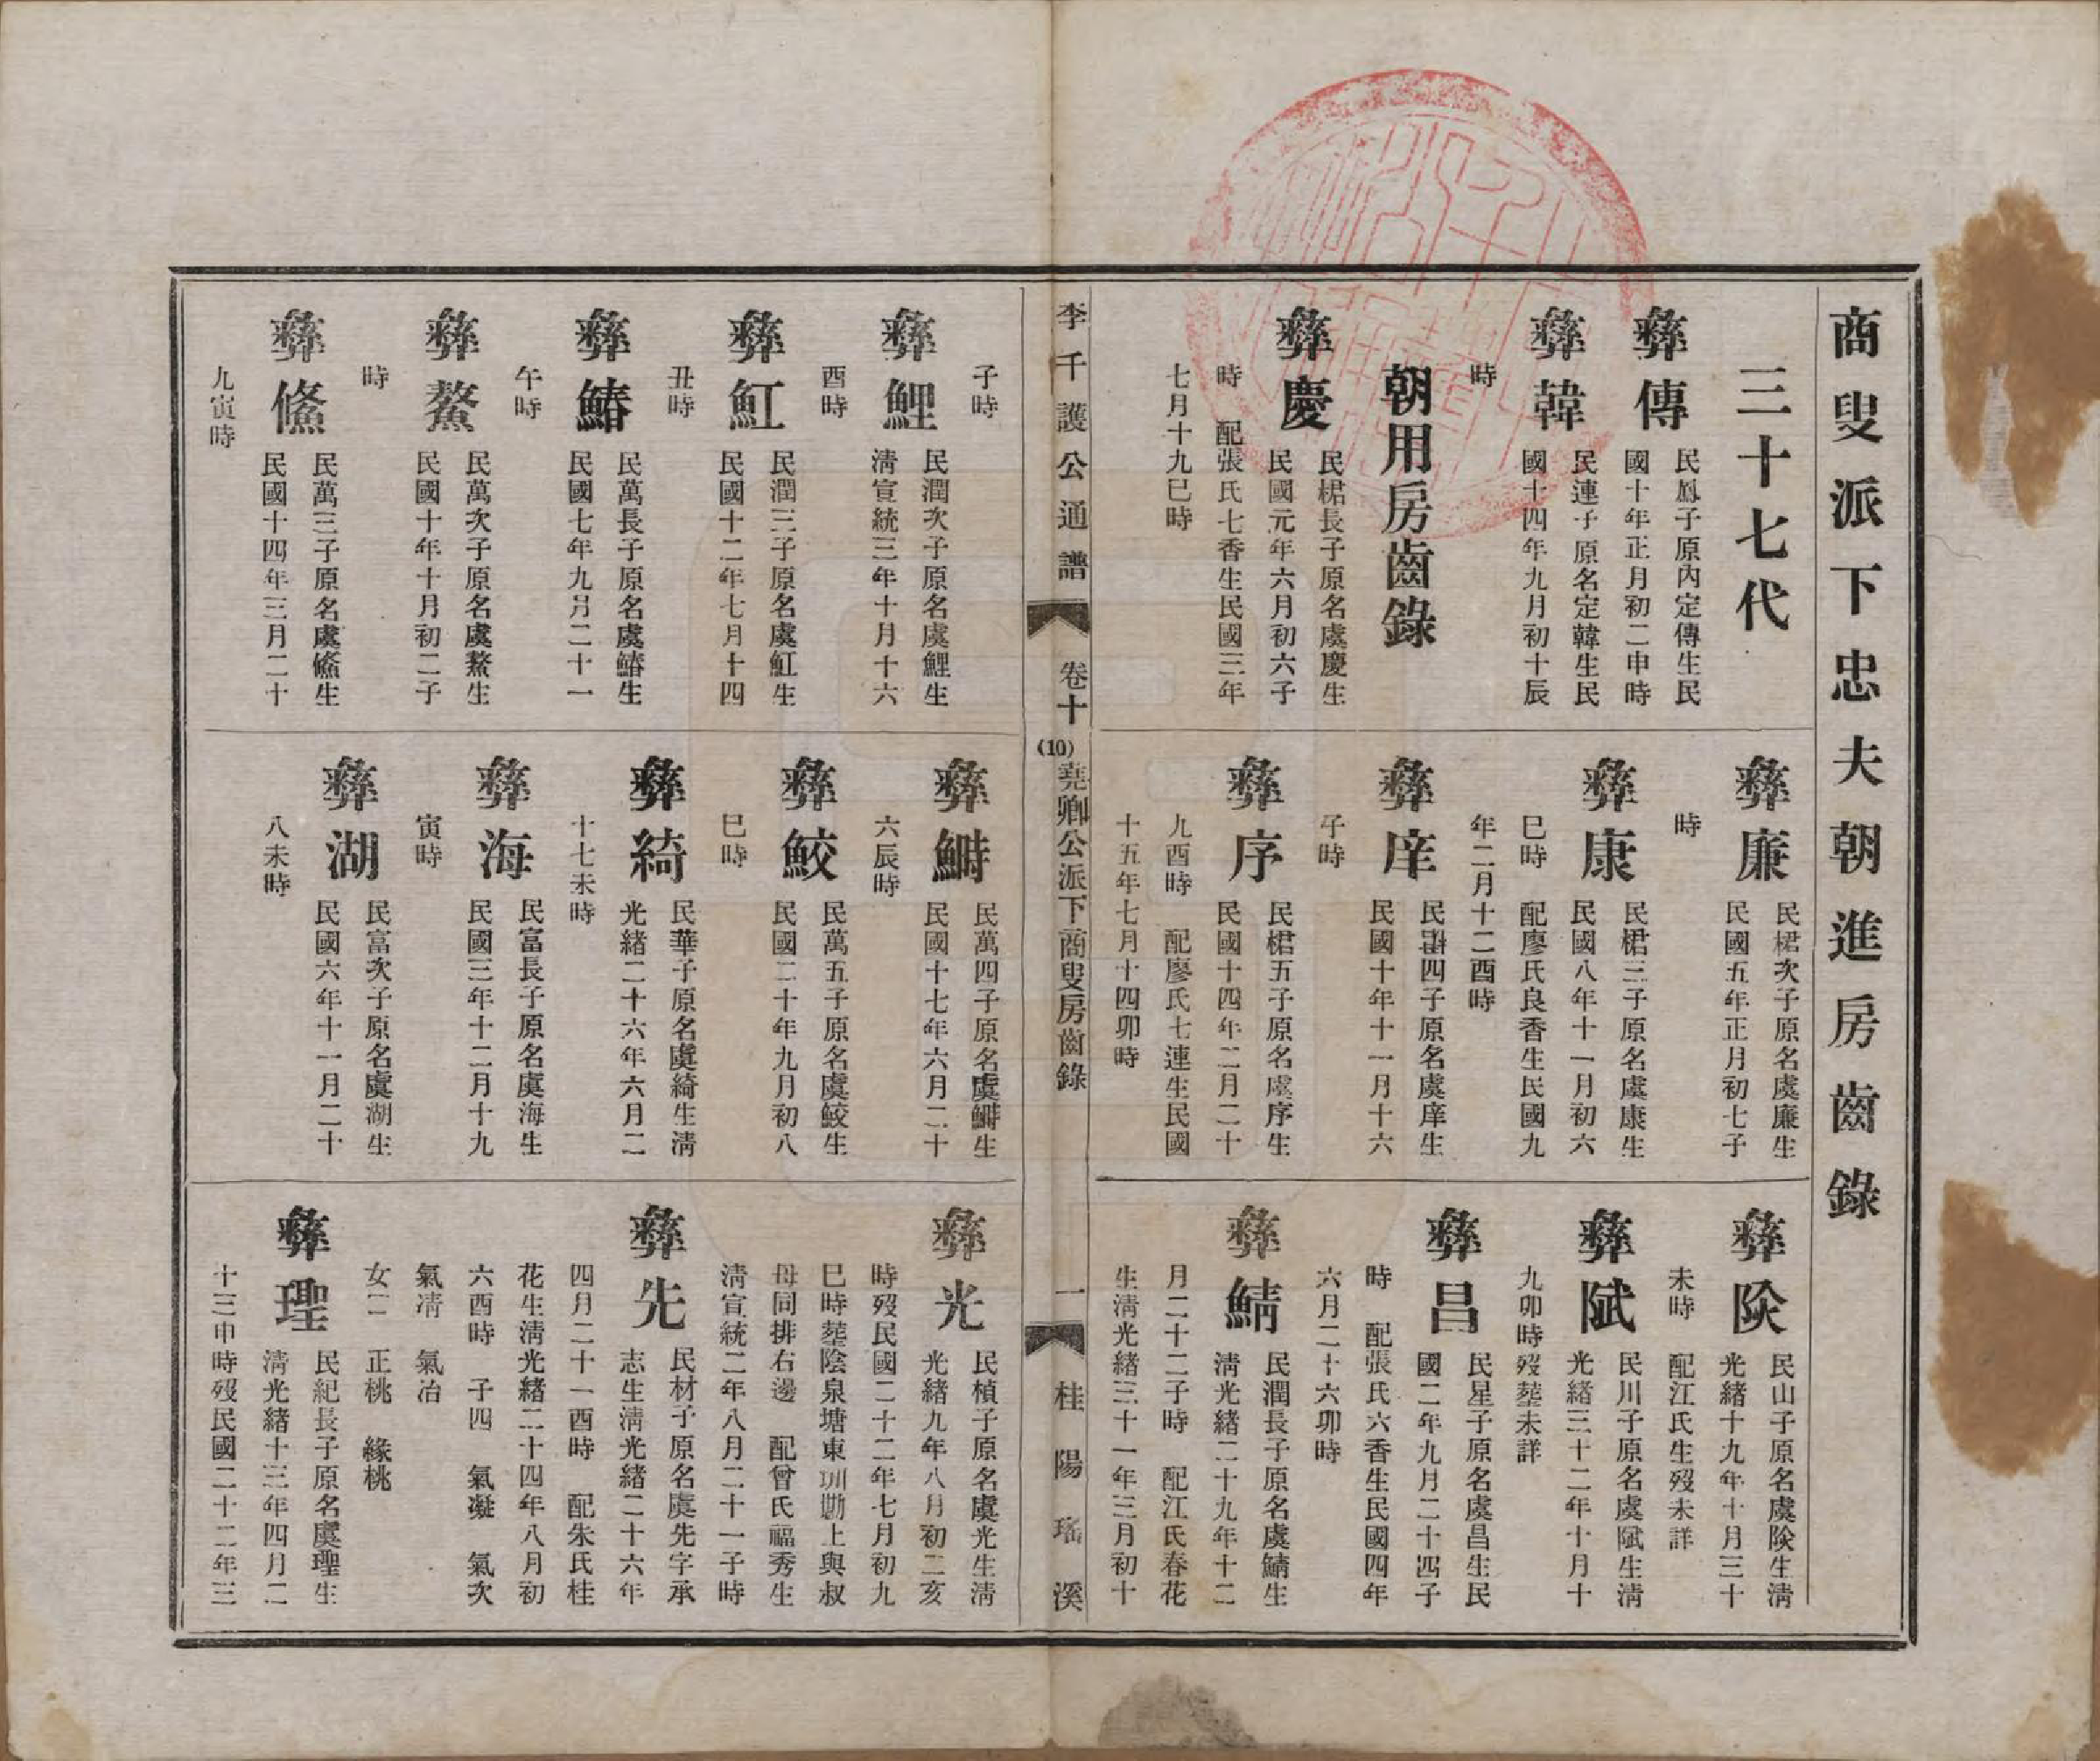 商叟派下忠夫朝進房齒錄
三十七代
彝傳
民鳳子原內定傳生民
國十年正月初二申時
彝韓
民連子原名定韓生民
國十四年九月初十辰
時
朝用房齒錄
彝慶
民桾長子原名虞慶生
民國元年六月初六子
時 配張氏七香生民國三年
七月十九巳時
彝廉
民桾次子原名虞廉生
民國五年正月初七子
時
彝康
民桾三子原名虞康生
民國八年十一月初六
巳時 配廖氏良香生民國九
年二月十二酉時
彝庠
四子原名虞庠生
民國十年十一月十六
子時
彝序
民桾五子原名虞序生
民國十四年二月二十
九酉時 配廖氏七連生民國
十五年七月十四卯時
彝陝
民山子原名虞陝生淸
光緒十九年十月三十
未時 配江氏生歿未詳
彝賦
民川子原名虞賦生淸
光緒三十二年十月十
九卯時歿塟未詳
彝昌
民星子原名虞昌生民
國二年九月二十四子
時 配張氏六香生民國四年
六月二十六卯時
彝鯖
民潤長子原名虞鯖生
淸光緒二十九年十二
月二十二子時 配江氏春花
生淸光緒三十一年三月初十
李千護公通譜
卷十
(10)
堯卿公派下商叟房齒錄
一
桂陽瑤溪
子時
彝鯉
民潤次子原名虞鯉生
淸宣統三年十月十六
酉時
彝魟
民潤三子原名虞魟生
民國十二年七月十四
丑時
彝鰆
民萬長子原名虞鰆生
民國七年九月二十一
午時
彝鰲
民萬次子原名虞鰲生
民國十年十月初二子
時
彝鯈
民萬三子原名虞鯈生
民國十四年三月二十
九寅時
彝鰣
民萬四子原名虞鰣生
民國十七年六月二十
六辰時
彝鮫
民萬五子原名虞鮫生
民國二十年九月初八
巳時
彝綺
民華子原名虞綺生淸
光緒二十六年六月二
十七未時
彝海
民富長子原名虞海生
民國三年十二月十九
寅時
彝湖
民富次子原名虞湖生
民國六年十一月二十
八未時
彝光
民楨子原名虞光生淸
光緒九年八月初二亥
時歿民國二十二年七月初九
巳時塟陰泉塘東圳勘上與叔
母同排右邊 配曾氏福秀生
淸宣統二年八月二十一子時
彝先
民材子原名虞先字承
志生淸光緒二十六年
四月二十一酉時 配朱氏桂
花生淸光緒二十四年八月初
六酉時 子四 氣凝 氣次
氣凊 氣冶
女二 正桃 緣桃
彝瑆
民紀長子原名虞瑆生
淸光緒十三年四月二
十三申時歿民國二十二年三